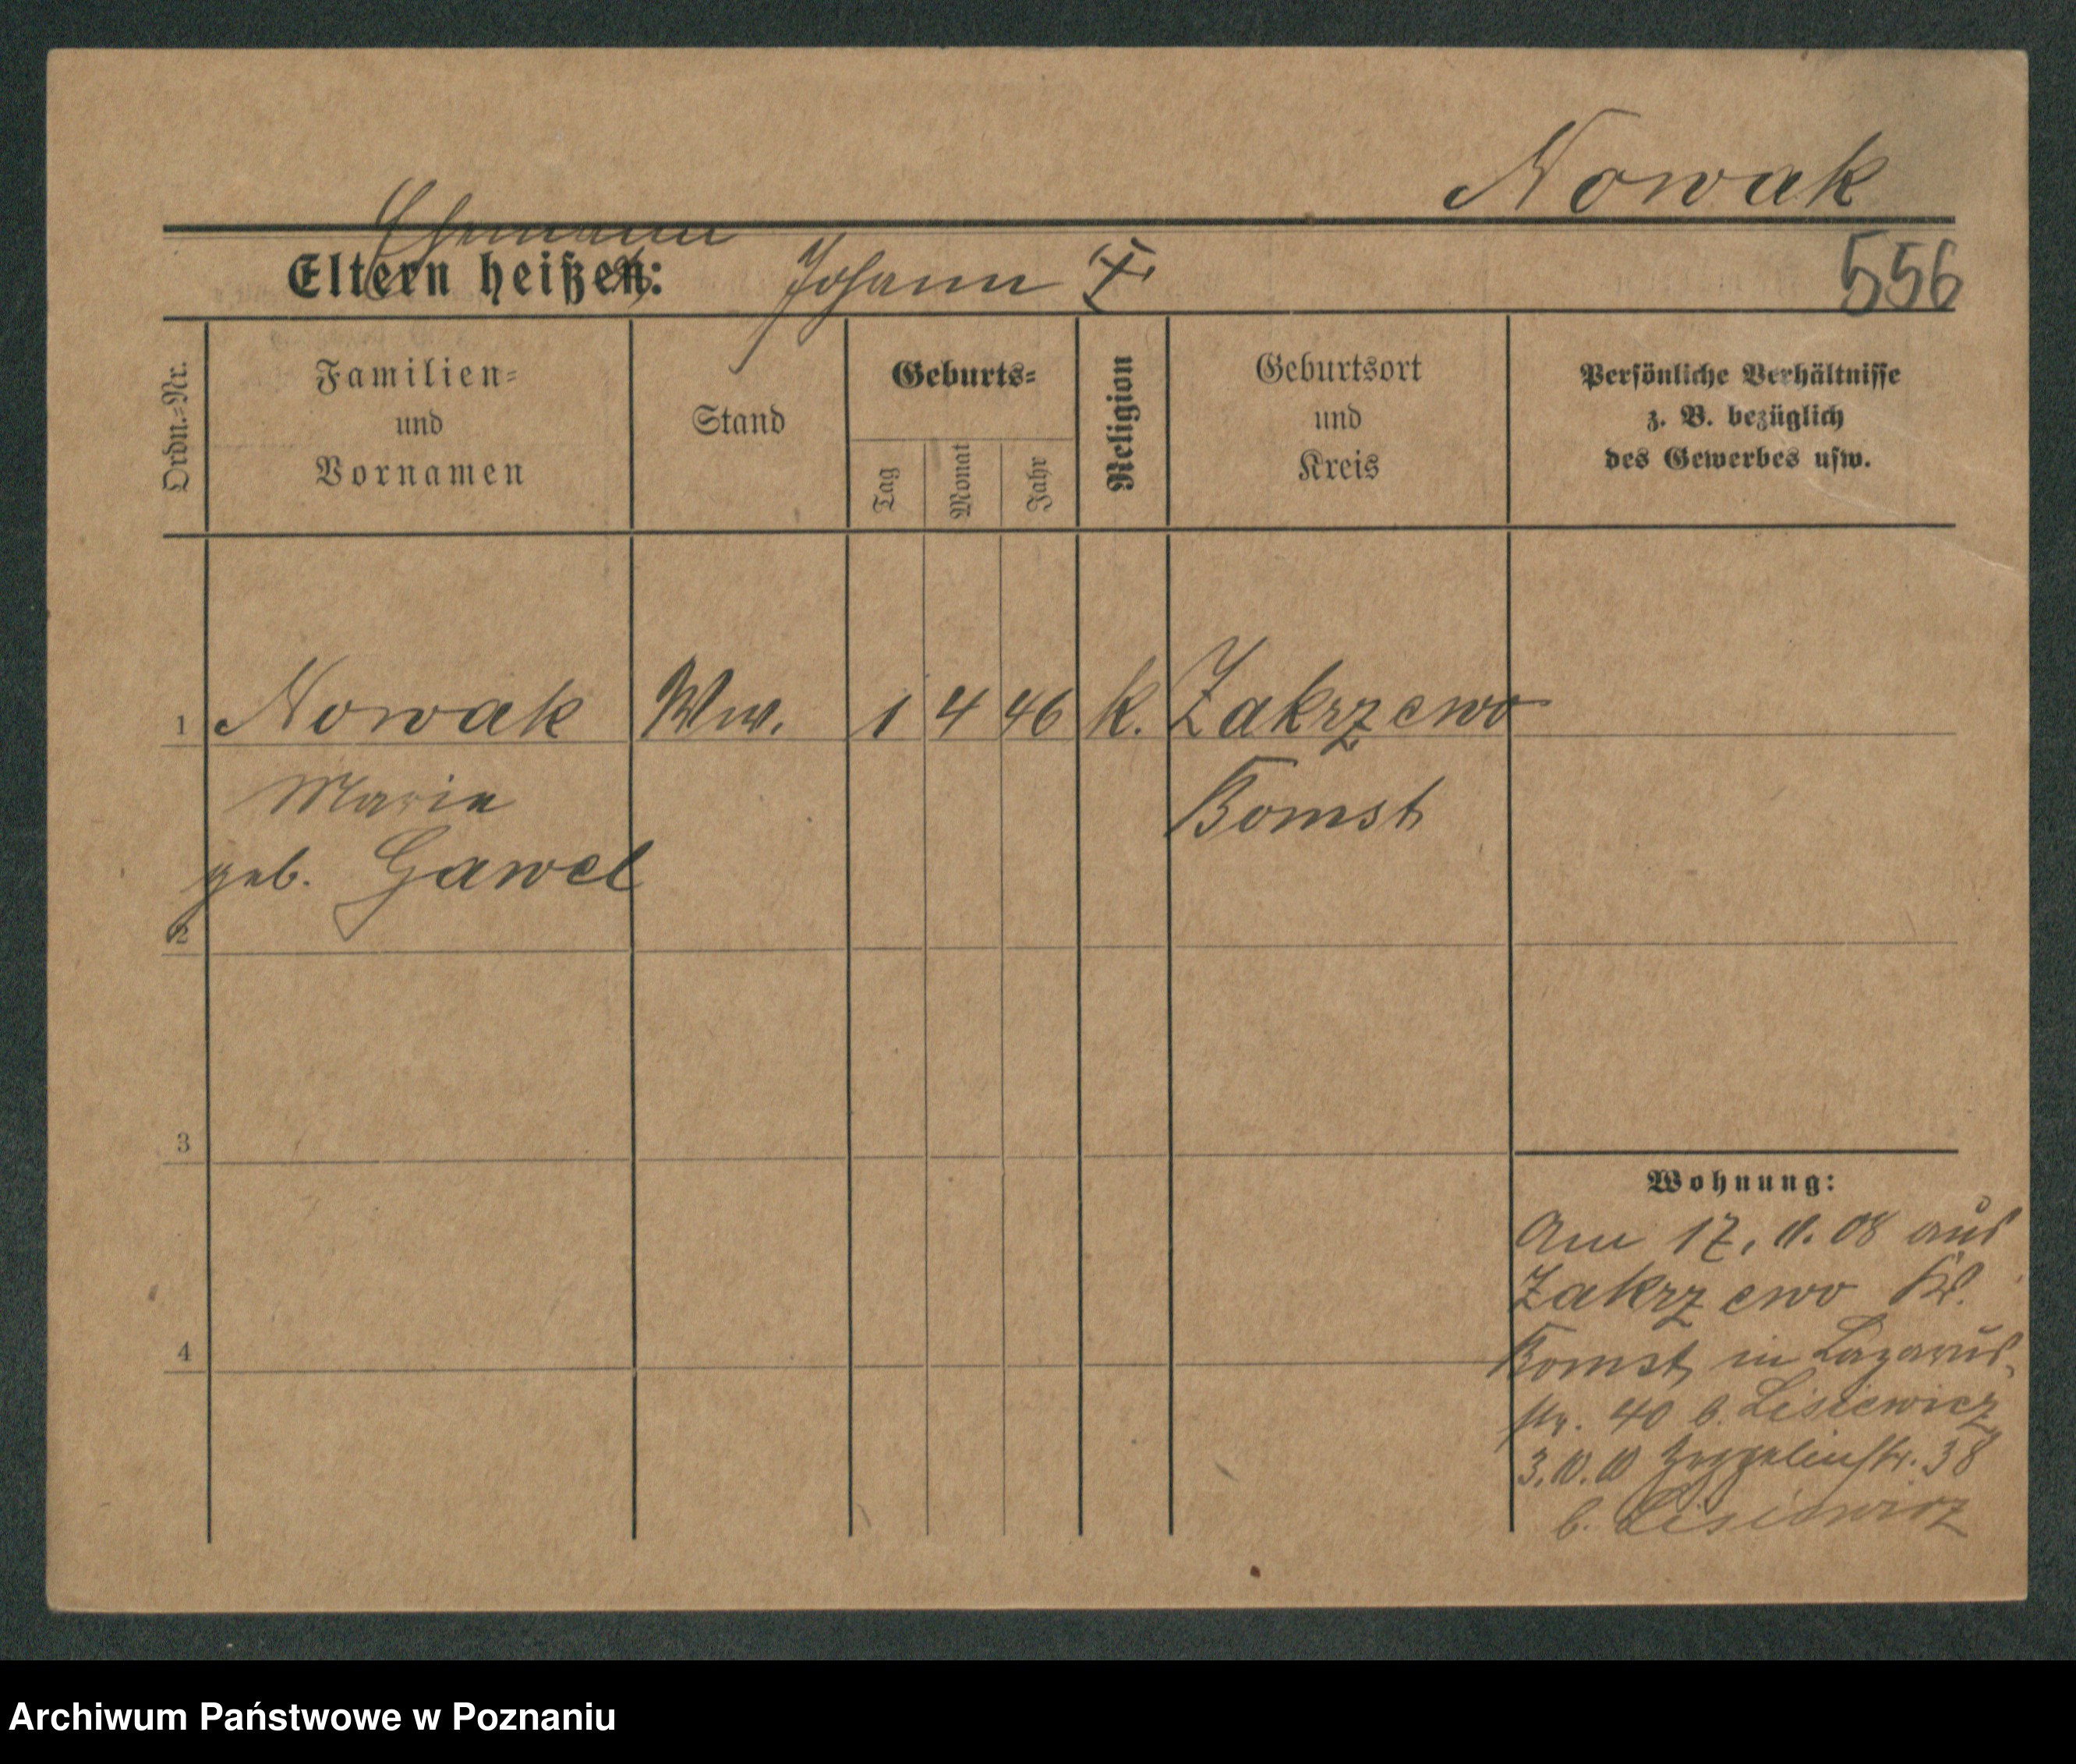 Nowak
Ehemann
Eltern heißen: Johann
556
Ordn.-Nr.
Familien-
und
Vornamen
Stand
Geburts-
Tag
Monat
Jahr
Religion
Geburtsort
und
Kreis
Persönliche Verhältnisse
z. B. bezüglich
des Gewerbes usw.
1 Nowak Ww. 1 4 46 k. Zakrzewo
Marie Bomst
geb. Gawel
2
3
Wohnung:
Am 17. 11. 08 aus
Zakrzewo Kr.
4
Bomst, in Lazarus-
str. 40 b. Lisiewicz
3.10.10 Zeppelinstr. 38
b. Lisiewicz
Archiwum Państwowe w Poznaniu